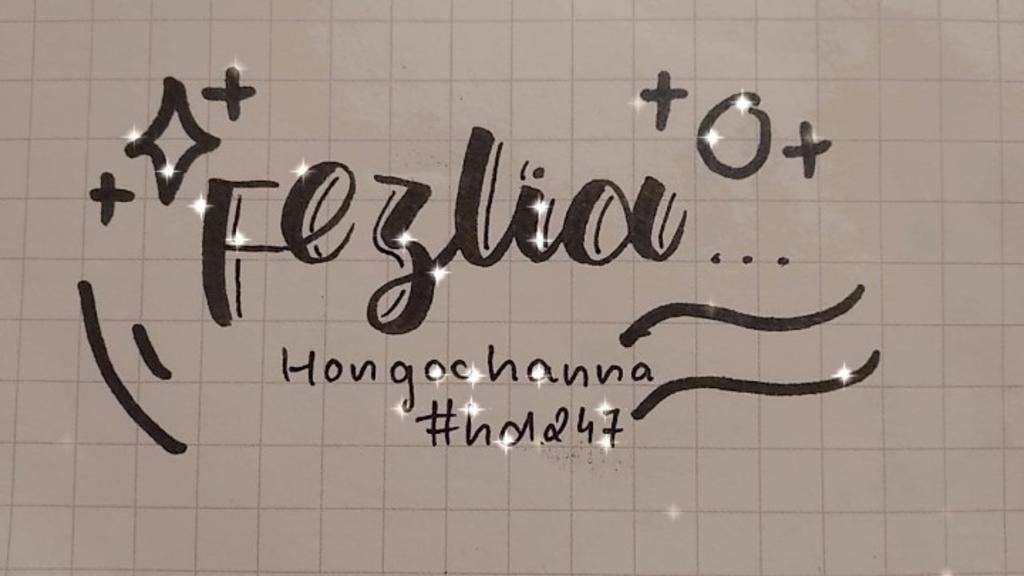 Fezlia...
Hongochanna
#hd247